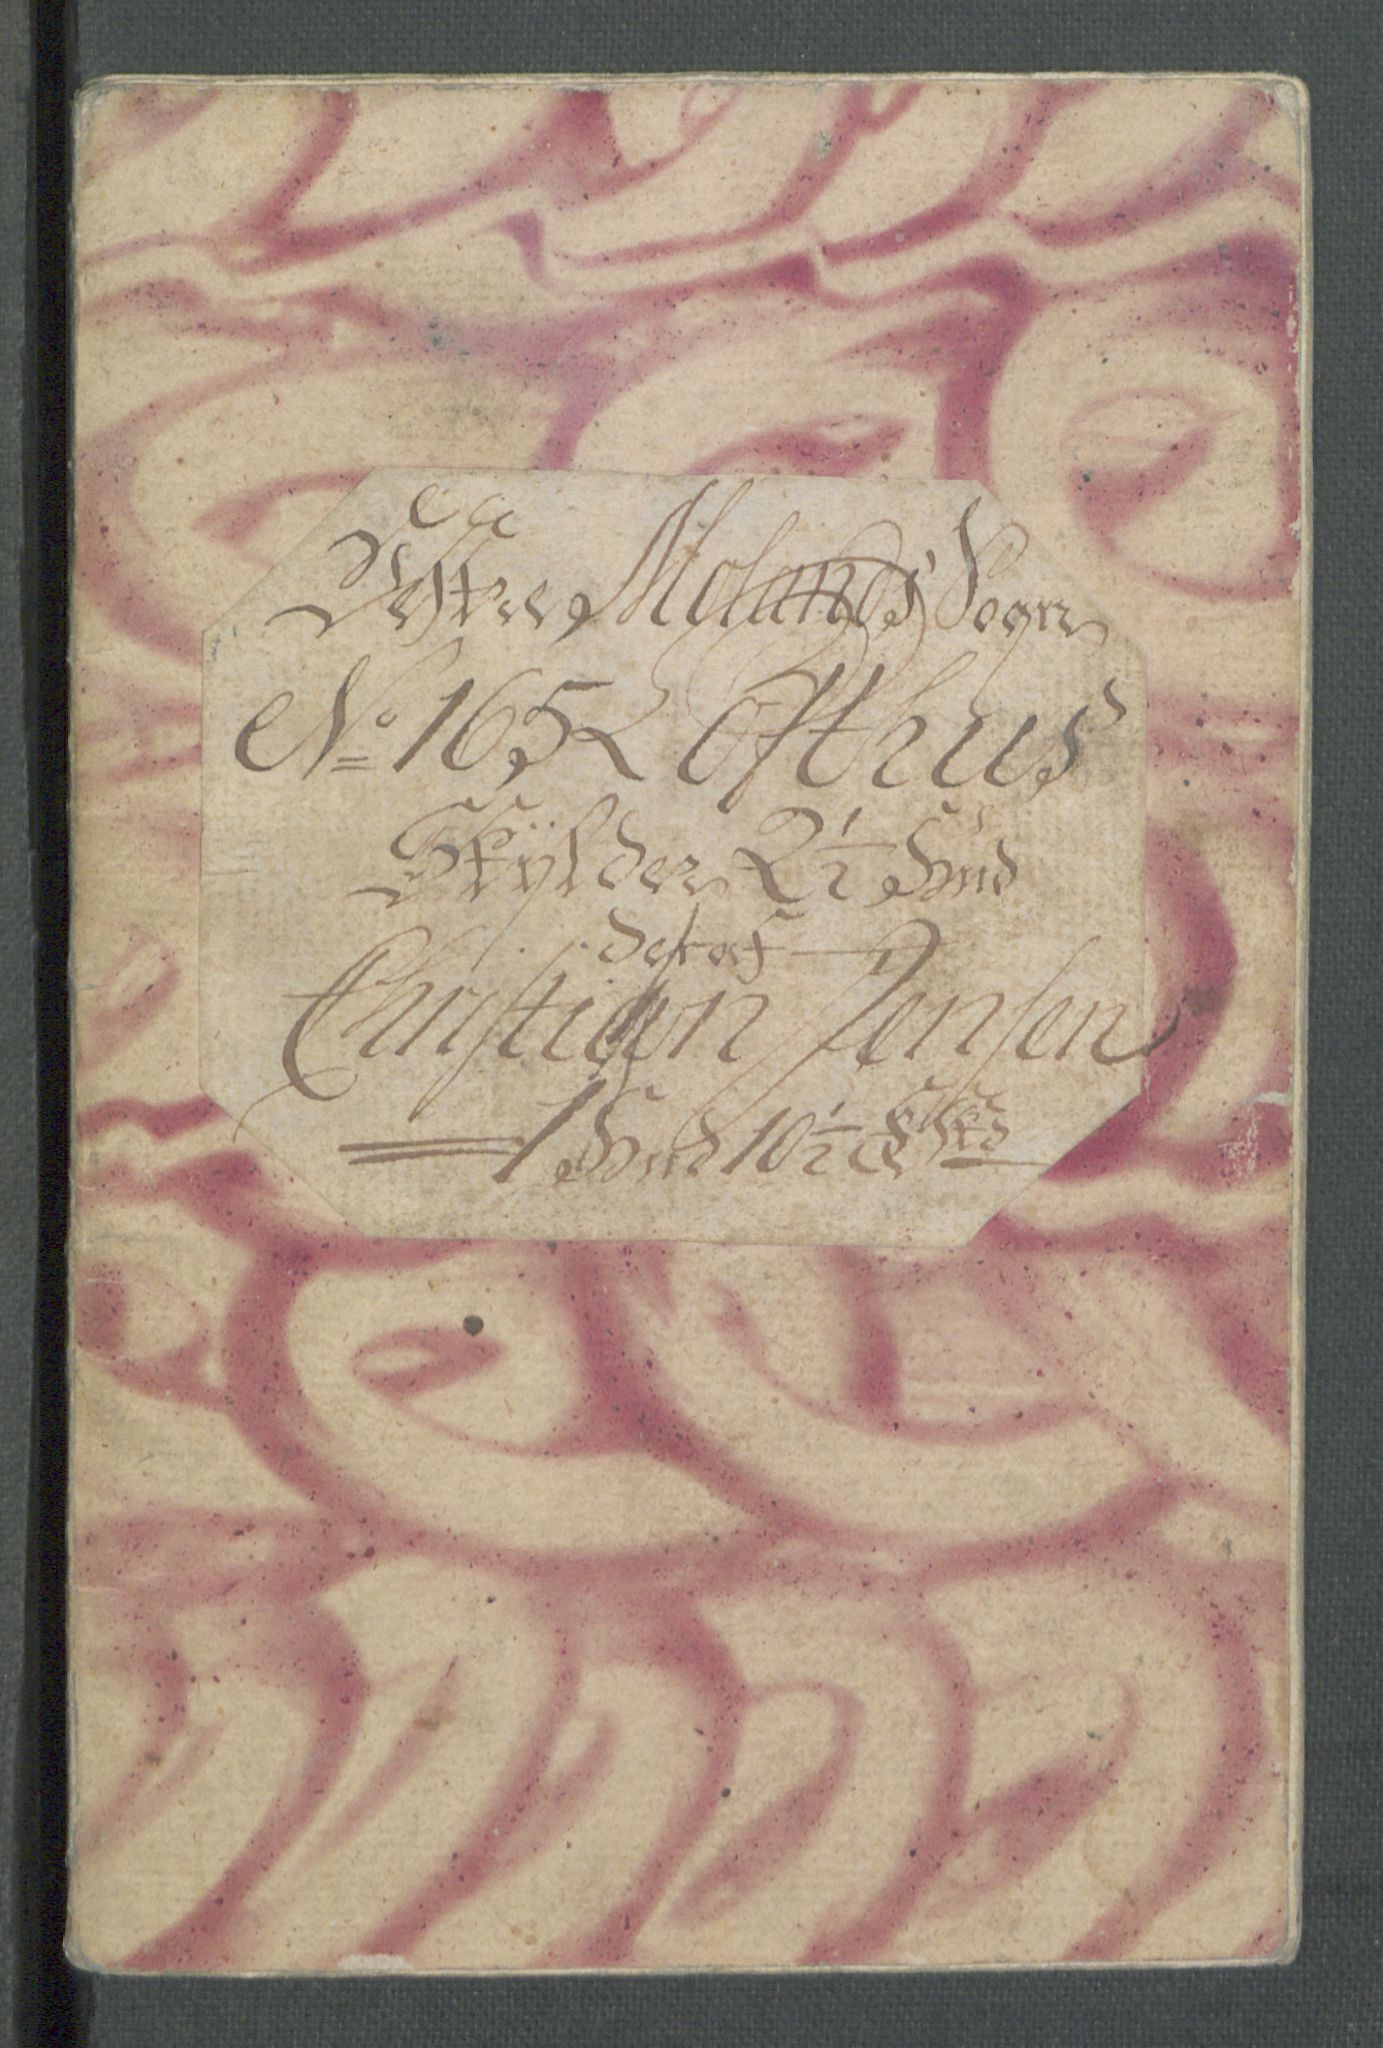 Østre Molands Sogn
No. 165 Lofthus
Skylder 2 1/2 Hud
deraf
Christian Jensen
1 Hud 10 1/2